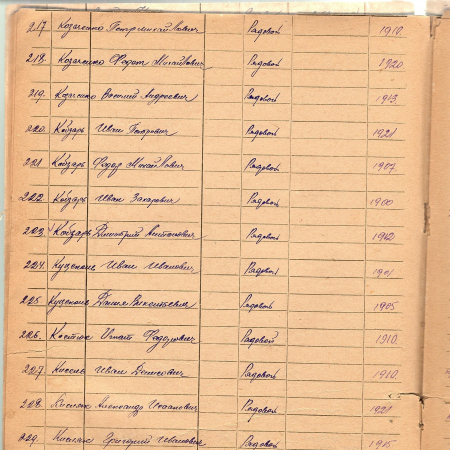 217. Козаченко Рядовой 1910
218. Козаченко Федот Михайлович Рядовой 1920
219. Козаченко Василий Андреевич Рядовой 1913
220. Кобзарь Иван Петрович Рядовой 1921
221 Кобзарь Федор Михайлович Рядовой 1907
222. Кобзарь Иван Захарович Рядовой 1900
223. Кобзарь Дмитрий Антонович Рядовой 1902
224. Иван Иванович Рядовой 1901
225. Рядовой 1905
226. Костюк Игнат Федорович Рядовой 1910
227. Иван Денисович Рядовой 1910
228. Кисляк Александр Рядовой 1921
229. Кисляк Григорий Иванович Рядовой 1915